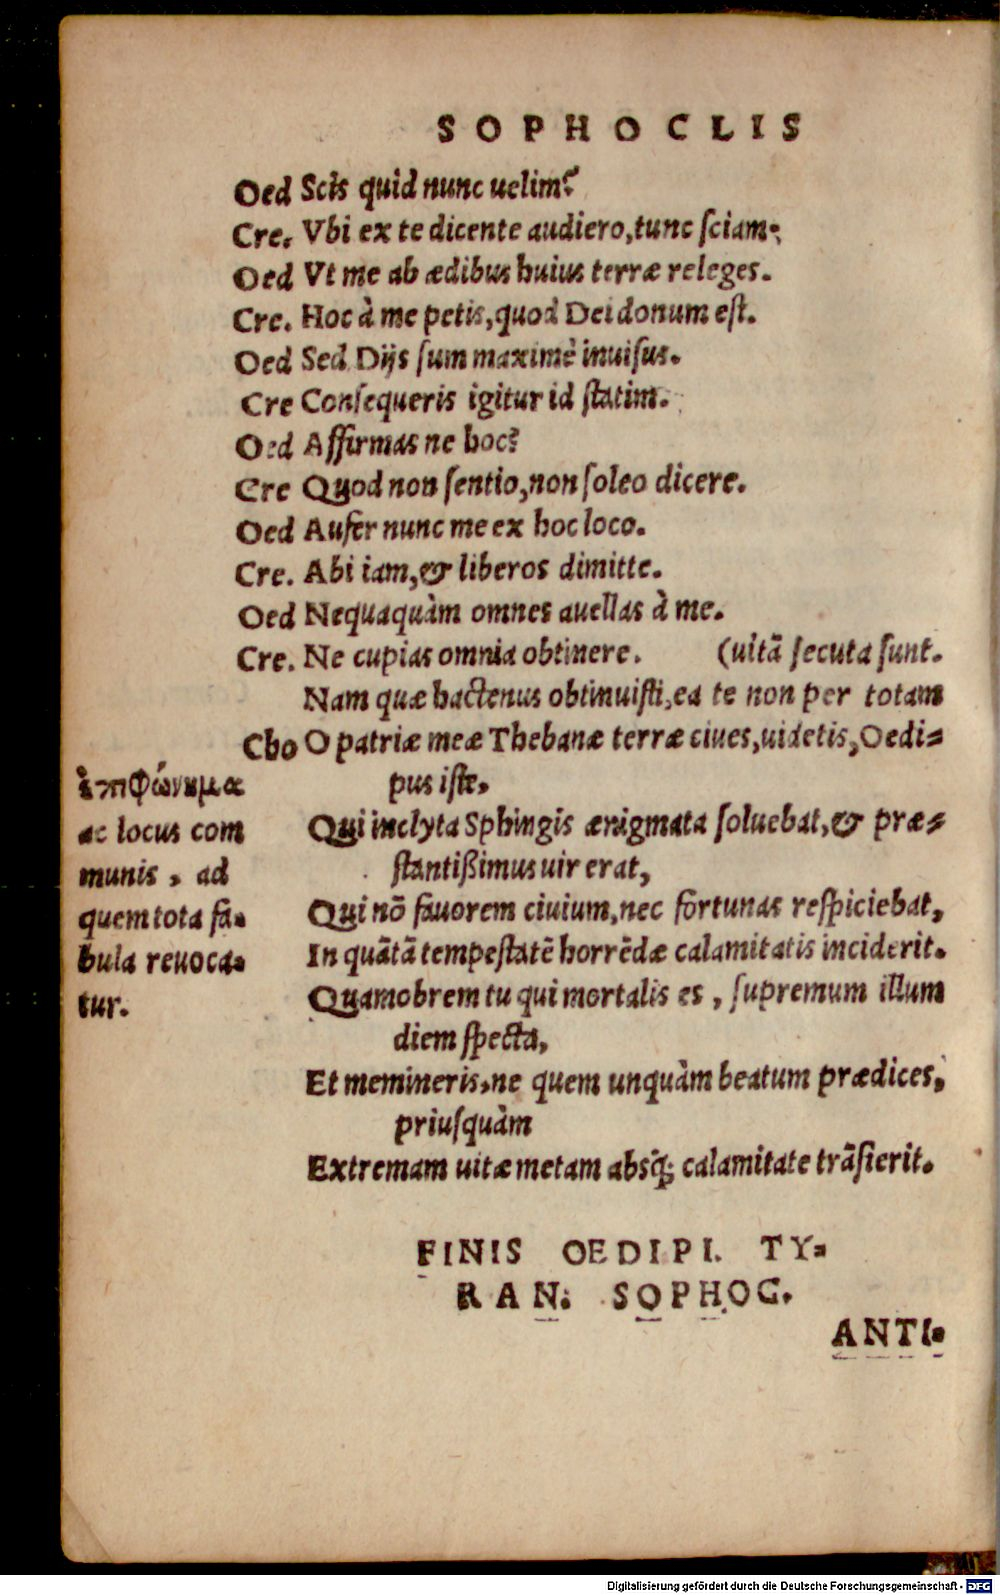 SOPHOCLIS
Oed Scis quid nunc uelim?
Cre. Vbi ex te dicente audiero, tunc sciam.
Oed Vt me ab ædibus huius terræ releges.
Cre. Hoc à me petis, quod Dei donum est.
Oed Sed Dijs sum maximè inuisus.
Cre Consequeris igitur id statim.
Oed Affirmas ne hoc?
Cre Quod non sentio, non soleo dicere.
Oed Aufer nunc me ex hoc loco.
Cre. Abi iam, & liberos dimitte.
Oed Nequaquàm omnes auellas à me.
Cre. Ne cupias omnia obtinere. (uitā secuta sunt.
Nam quæ hactenus obtinuisti, ea te non per totam
Cho O patriæ meæ Thebanæ terræ ciues, uidetis, Oedi-
pus iste.
Qui inclyta Sphingis ænigmata soluebat, & præ-
stantißimus uir erat,
Qui nō fauorem ciuium, nec fortunas respiciebat,
In quātā tempestatē horrēdæ calamitatis inciderit.
Quamobrem tu qui mortalis es, supremum illum
diem specta,
Et memineris, ne quem unquàm beatum prædices,
priusquàm
Extremam uitæ metam absq; calamitate trāsierit.
ἐπιφώνημα
ac locus com
munis, ad
quem tota fa-
bula reuoca-
tur.
FINIS OEDIPI. TY-
RAN. SOPHOC.
ANTI-
Digitalisierung gefördert durch die Deutsche Forschungsgemeinschaft - DFG